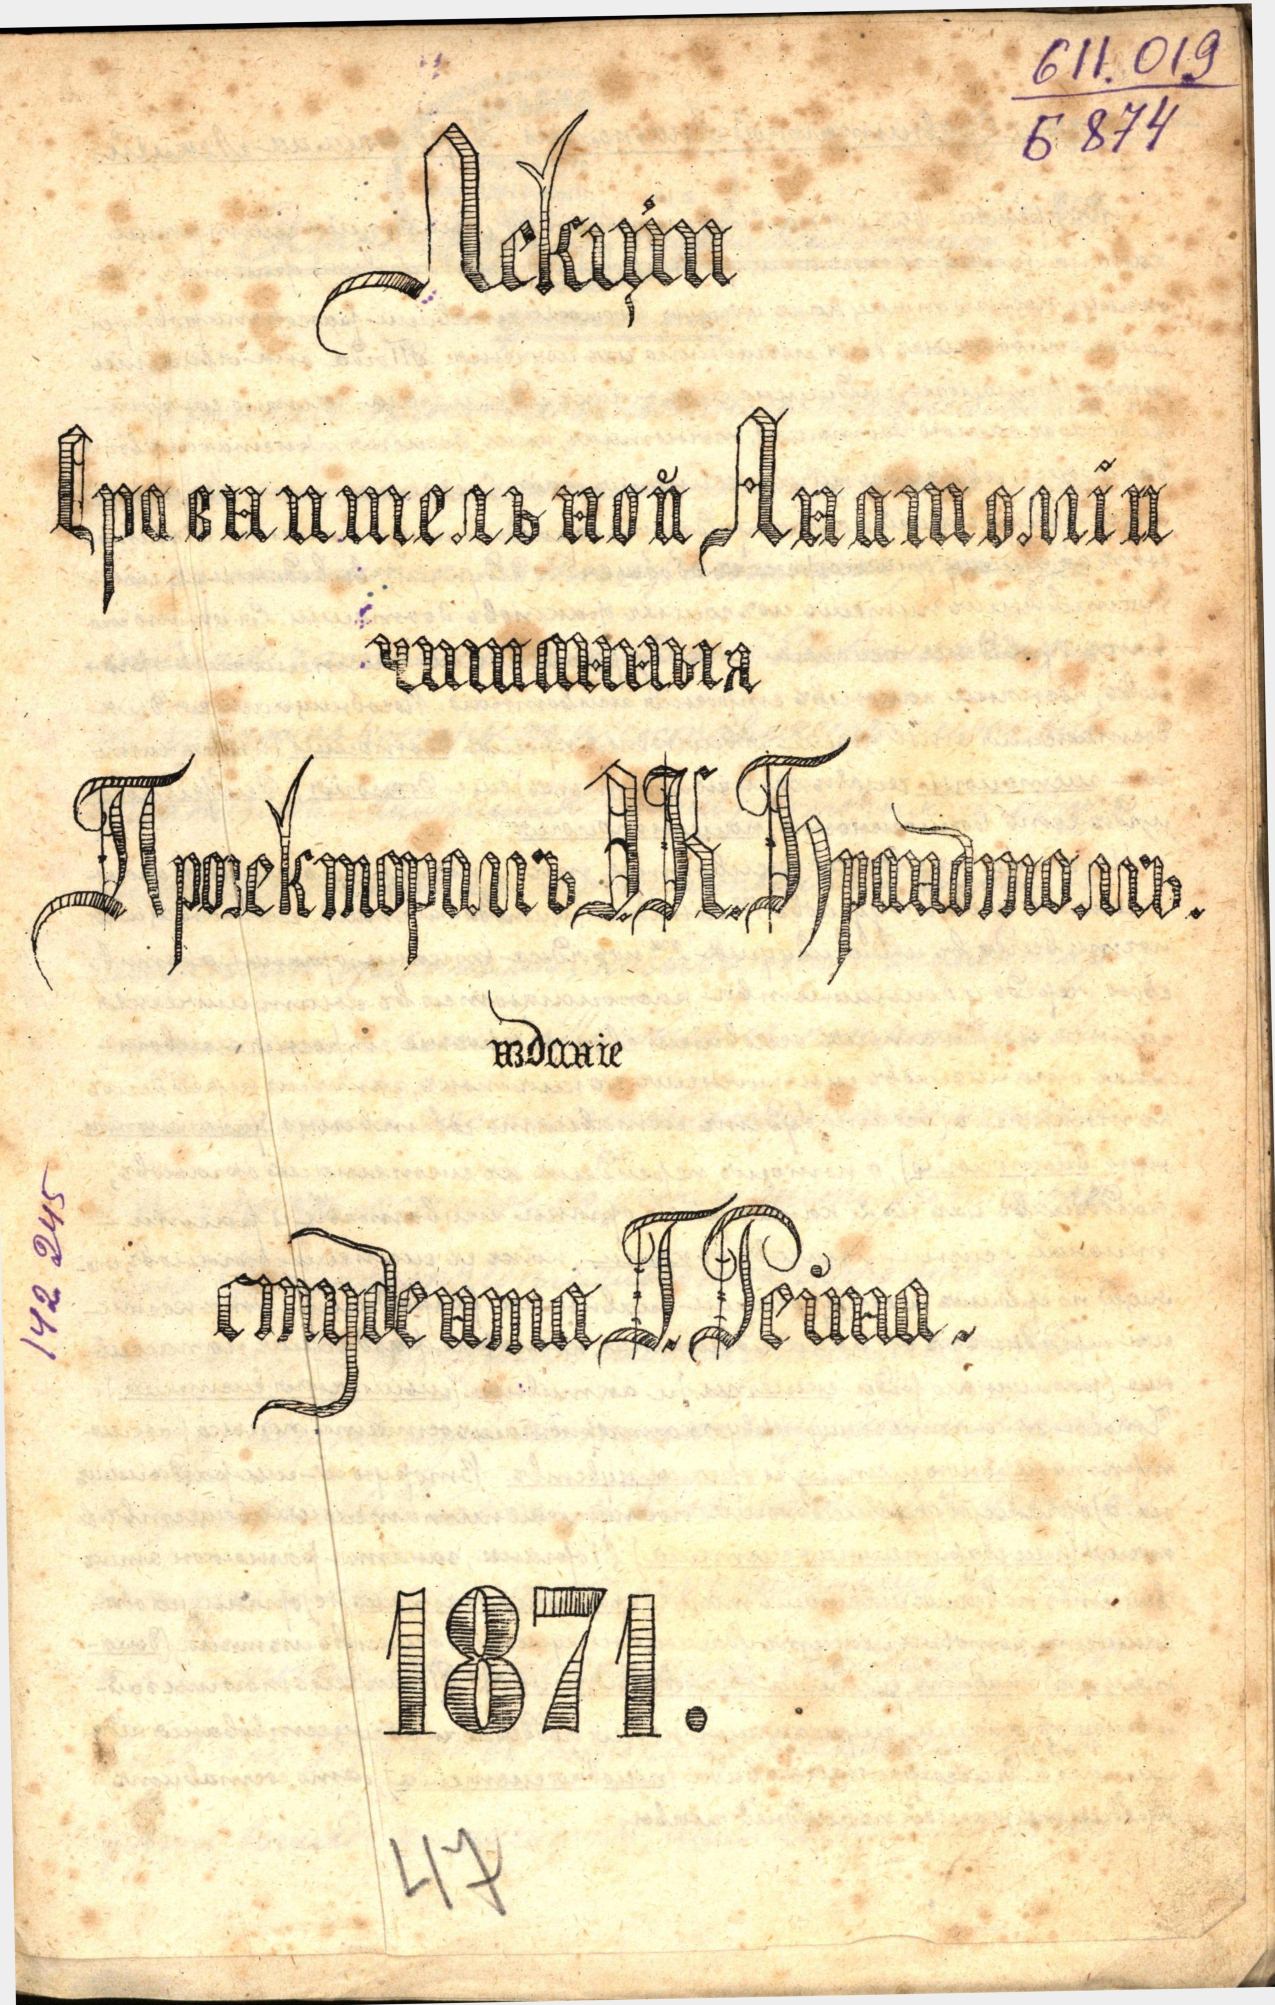 611.019
Б 874
Лекціи
Сравнительной Анатоміи
читанныя
Прозекторомъ Э. К. Брандтомъ.
изданіе
студента Г. Рейна.
1871.
47
142 245